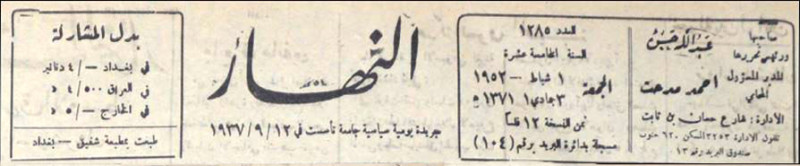 صاحبها
عبدالله حسين
ورئيس تحريرها
المدير المسؤول
المحامي
احمد مدحت
الادارة: شارع حسان بن ثابت
تلفون الادارة ٣٢٥٣ السكن ٩٢٠ جنوب
صندوق البريد رقم ١٣
العدد ١٢٨٥
السنة الخامسة عشرة
الجمعة
١ شباط — ١٩٥٢
٣ جمادي١ ١٣٧١ ه
ثمن النسخة ١٢ فلسا
مسجلة بدائرة البريد برقم (١٠٤)
النهار
جريدة يومية سياسية جامعة تأسست في ١٩٣٧/٩/١٢
بدل المشاركة
في بغداد —/٤ دنانير
في العراق ٤/٥٠٠ د
في الخارج —/٥ د
طبعت بمطبعة شفيق — بغداد